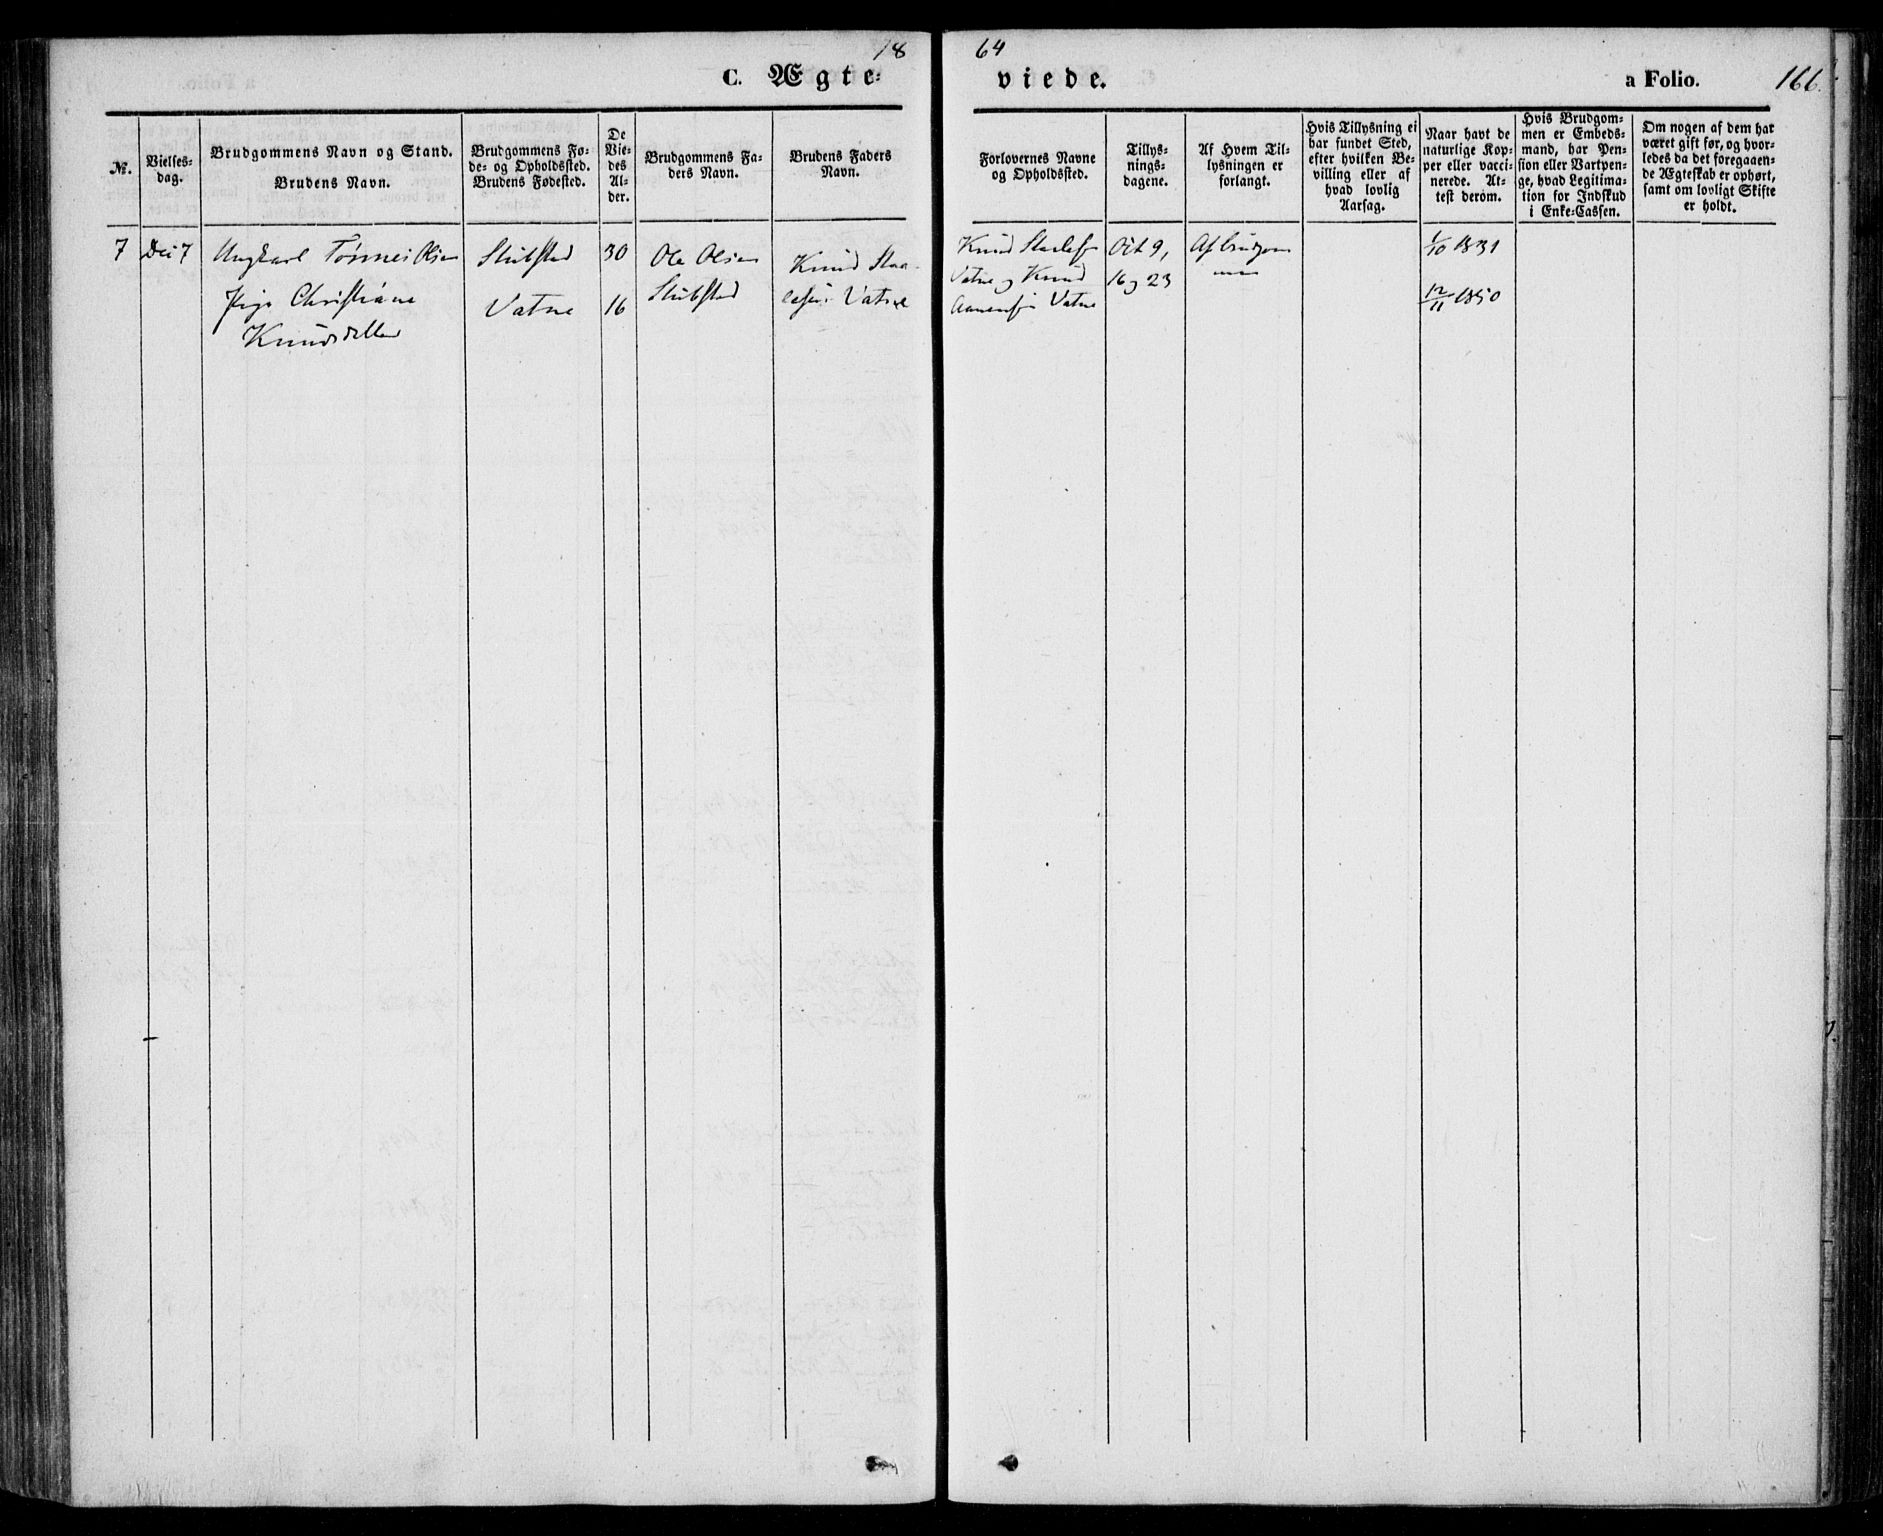 18 64
C. Ægte-
viede.
a Folio.
166.
№.
Vielses-
dag.
Brudgommens Navn og Stand.
Brudens Navn.
Brudgommens Fø-
de- og Opholdssted.
Brudens Fødested.
De
Vie-
des
Al-
der.
Brudgommens Fa-
ders Navn.
Brudens Faders
Navn.
Forlovernes Navne
og Opholdssted.
Tillys-
nings-
dagene.
Af Hvem Til-
lysningen er
forlangt.
Hvis Tillysning ei
har fundet Sted,
efter hvilken Be-
villing eller af
hvad lovlig
Aarsag.
Naar havt de
naturlige Kop-
per eller vacci-
nerede. At-
test derom.
Hvis Brudgom-
men er Embeds-
mand, har Pen-
sion eller Vartpen-
ge, hvad Legitima-
tion for Indskud
i Enke-Cassen.
Om nogen af dem har
været gift før, og hvor-
ledes da det foregaaen-
de Ægteskab er ophørt,
samt om lovligt Skifte
er holdt.
7
Dec 7
Ungkarl Tønnes Olsen
Pige Christiane
Knudsdatter
Stubstad
Vatne
30
16
Ole Olsen
Stubstad
Knud Staa-
lesen Vatne
Knud Staalesen
Vatne og Knud
Aanensen Vatne
Oct 9,
16 og 23
Af Brudgom
men
1/10 1831
12/11 1850